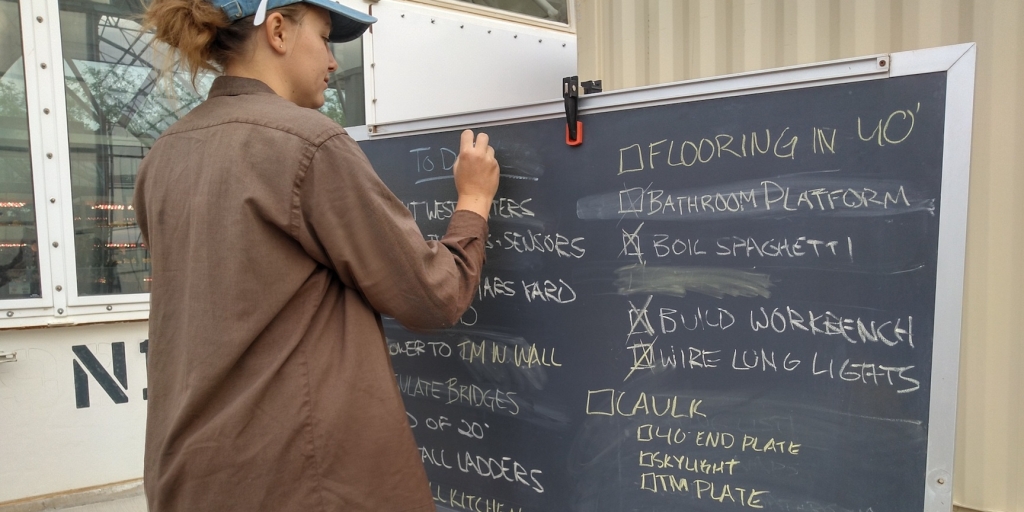 To D
T WEST
S-SENSORS
MARS YARD
OWER TO TM N WALL
ULATE BRIDGES
D OF 20'
ALL LADDERS
L KITCHEN
FLOORING IN 40'
BATHROOM PLATFORM
BOIL SPAGHETTI
BUILD WORKBENCH
WIRE LUNG LIGHTS
CAULK
40' END PLATE
SKYLIGHT
TM PLATE
N